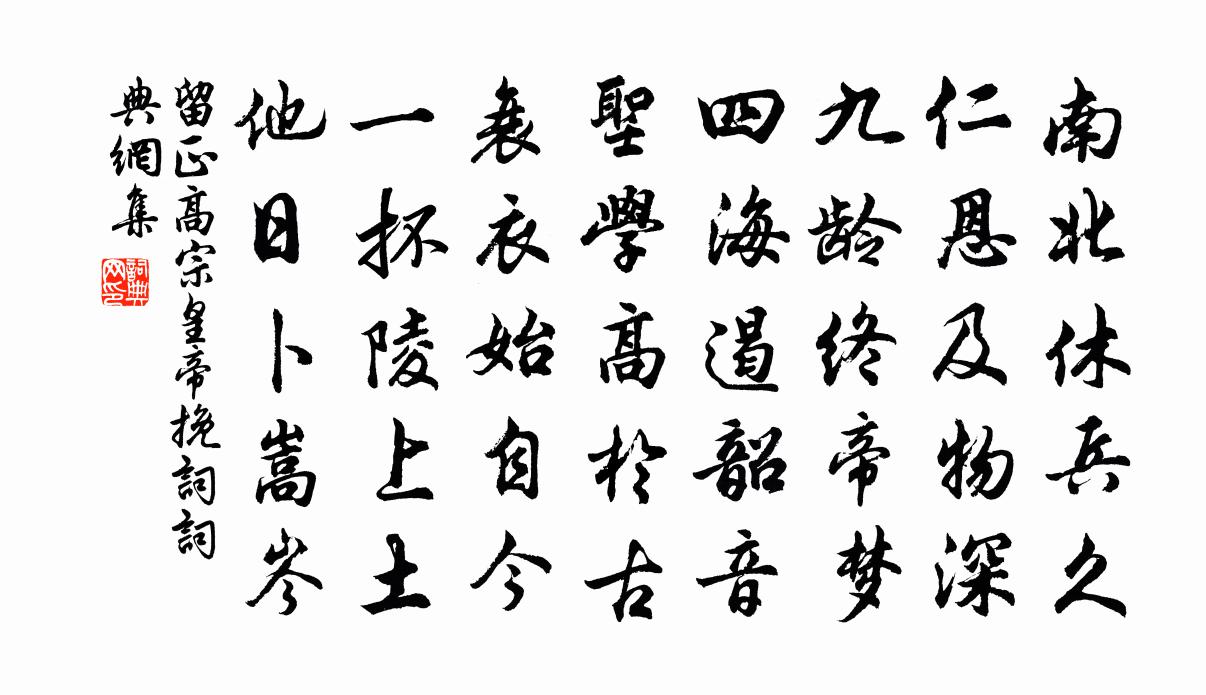 南北休兵久
仁恩及物深
九龄终帝梦
四海遏韶音
聖學高於古
衰衣始自今
一抔陵上土
他日卜嵩岑
留正高宗皇帝挽詞詞
典網集
詞典
网印